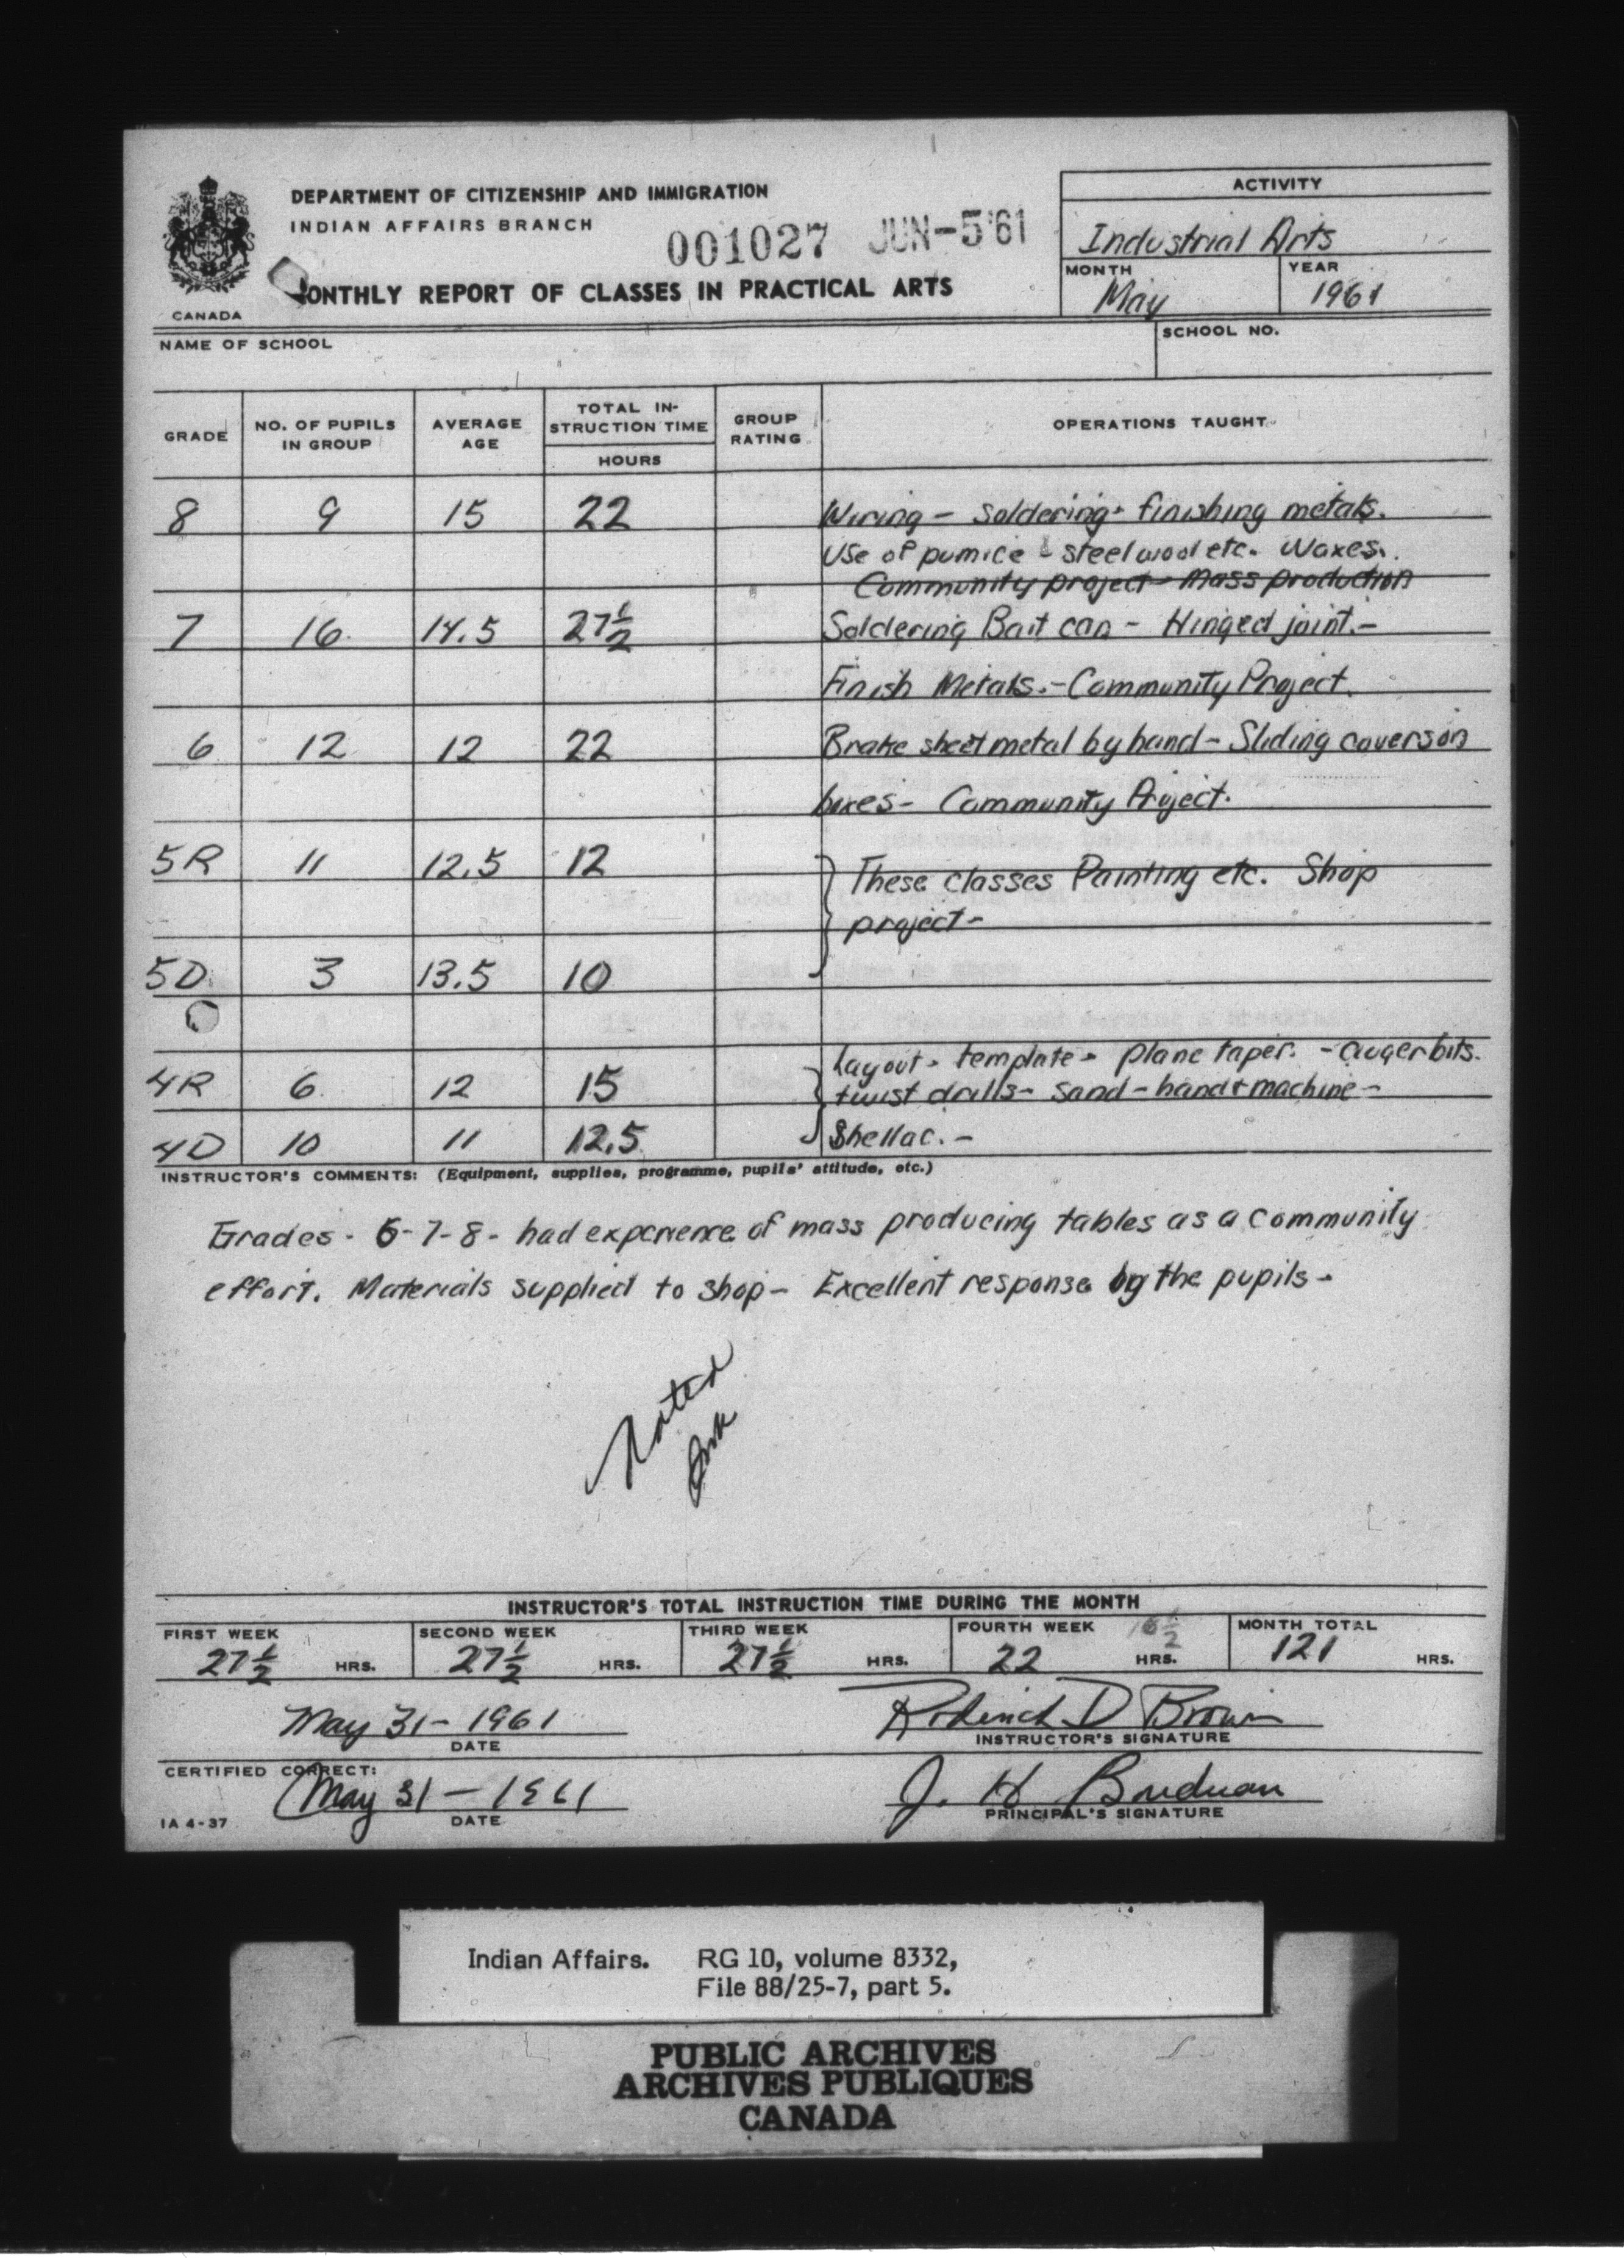 DEPARTMENT OF CITIZENSHIP AND IMMIGRATION
INDIAN AFFAIRS BRANCH
001027 JUN-5'61
MONTHLY REPORT OF CLASSES IN PRACTICAL ARTS
CANADA
ACTIVITY
Industrial Arts
MONTH YEAR
May 1961
NAME OF SCHOOL SCHOOL NO.
GRADE NO. OF PUPILS IN GROUP AVERAGE AGE TOTAL IN-STRUCTION TIME HOURS GROUP RATING OPERATIONS TAUGHT
8 9 15 22 Wiring - Soldering - finishing metals.
Use of pumice - steel wool etc. Waxes.
Community project - Mass production
7 16 14.5 27½ Soldering Bait can - Hinged joint. -
Finish Metals. - Community Project.
6 12 12 22 Brake sheet metal by hand - Sliding covers on
boxes - Community Project.
5R 11 12.5 12 These classes Painting etc. Shop
project -
5D 3 13.5 10
Layout - template - plane taper. - auger bits.
4R 6 12 15 twist drills - Sand - hand & machine -
4D 10 11 12.5 Shellac. -
INSTRUCTOR'S COMMENTS: (Equipment, supplies, programme, pupils' attitude, etc.)
Grades - 6-7-8 - had experience of mass producing tables as a community
effort. Materials supplied to shop - Excellent response by the pupils -
Noted
INSTRUCTOR'S TOTAL INSTRUCTION TIME DURING THE MONTH
FIRST WEEK SECOND WEEK THIRD WEEK FOURTH WEEK 16½ MONTH TOTAL
27½ HRS. 27½ HRS. 27½ HRS. 22 HRS. 121 HRS.
May 31 - 1961 Roderick D Brown
DATE INSTRUCTOR'S SIGNATURE
CERTIFIED CORRECT:
May 31 - 1961 J. H.
IA 4-37 DATE PRINCIPAL'S SIGNATURE
Indian Affairs. RG 10, volume 8332,
File 88/25-7, part 5.
PUBLIC ARCHIVES
ARCHIVES PUBLIQUES
CANADA